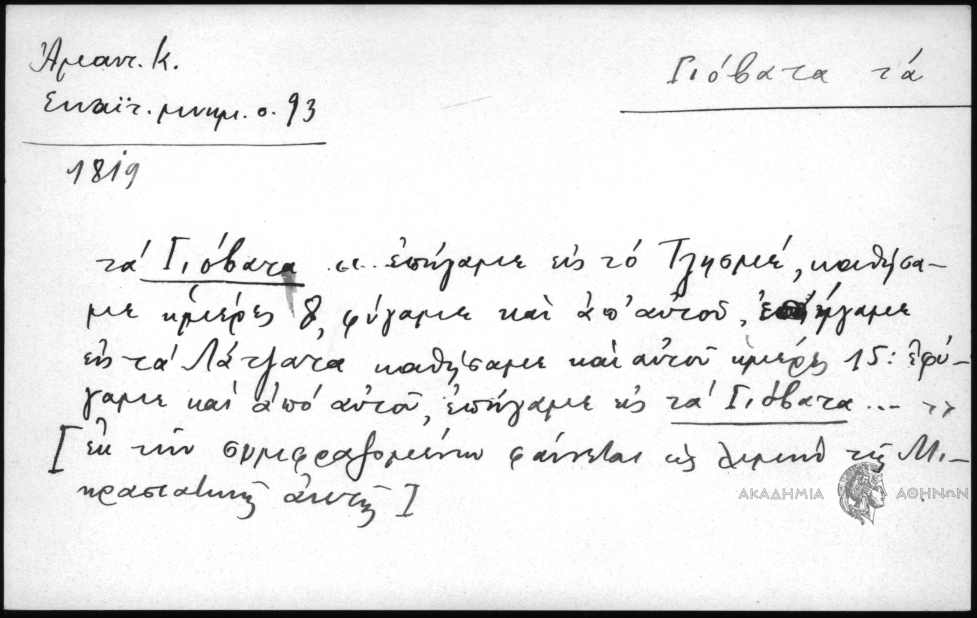 Ἀμαντ. Κ.
Σιναϊτ. μνημ. σ. 93
1819
Γιόβατα τά
τά Γιόβατα «... ἐπήγαμε εἰς τό Τζησμέ, καθήσα-
με ἡμέρες 8, φύγαμε καί ἀπ' αὐτοῦ, ἐπήγαμε
εἰς τά Λάτζατα καθήσαμε καί αὐτοῦ ἡμέρες 15: ἐφύ-
γαμε καί ἀπό αὐτοῦ, ἐπήγαμε εἰς τά Γιόβατα ... »
[ἐκ τῶν συμφραζομένων φαίνεται ὡς λιμήν τῆς Μι-
κρασιατικῆς ἀκτῆς]
ΑΚΑΔΗΜΙΑ ΑΘΗΝΩΝ